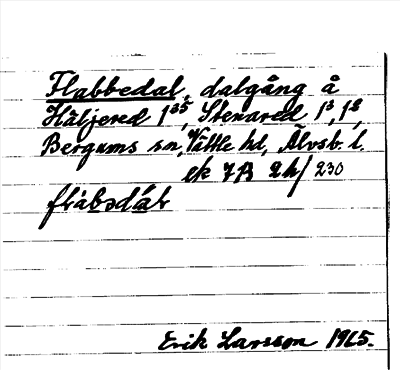 Flabbedal, dalgång å
Häljered 1³⁵, Stenared 1³, 1²,
Bergums sn, Vättle hd, Älvsb. l.
ek 7B 2h/230
flàbsdáɫ
Erik Larsson 1965.